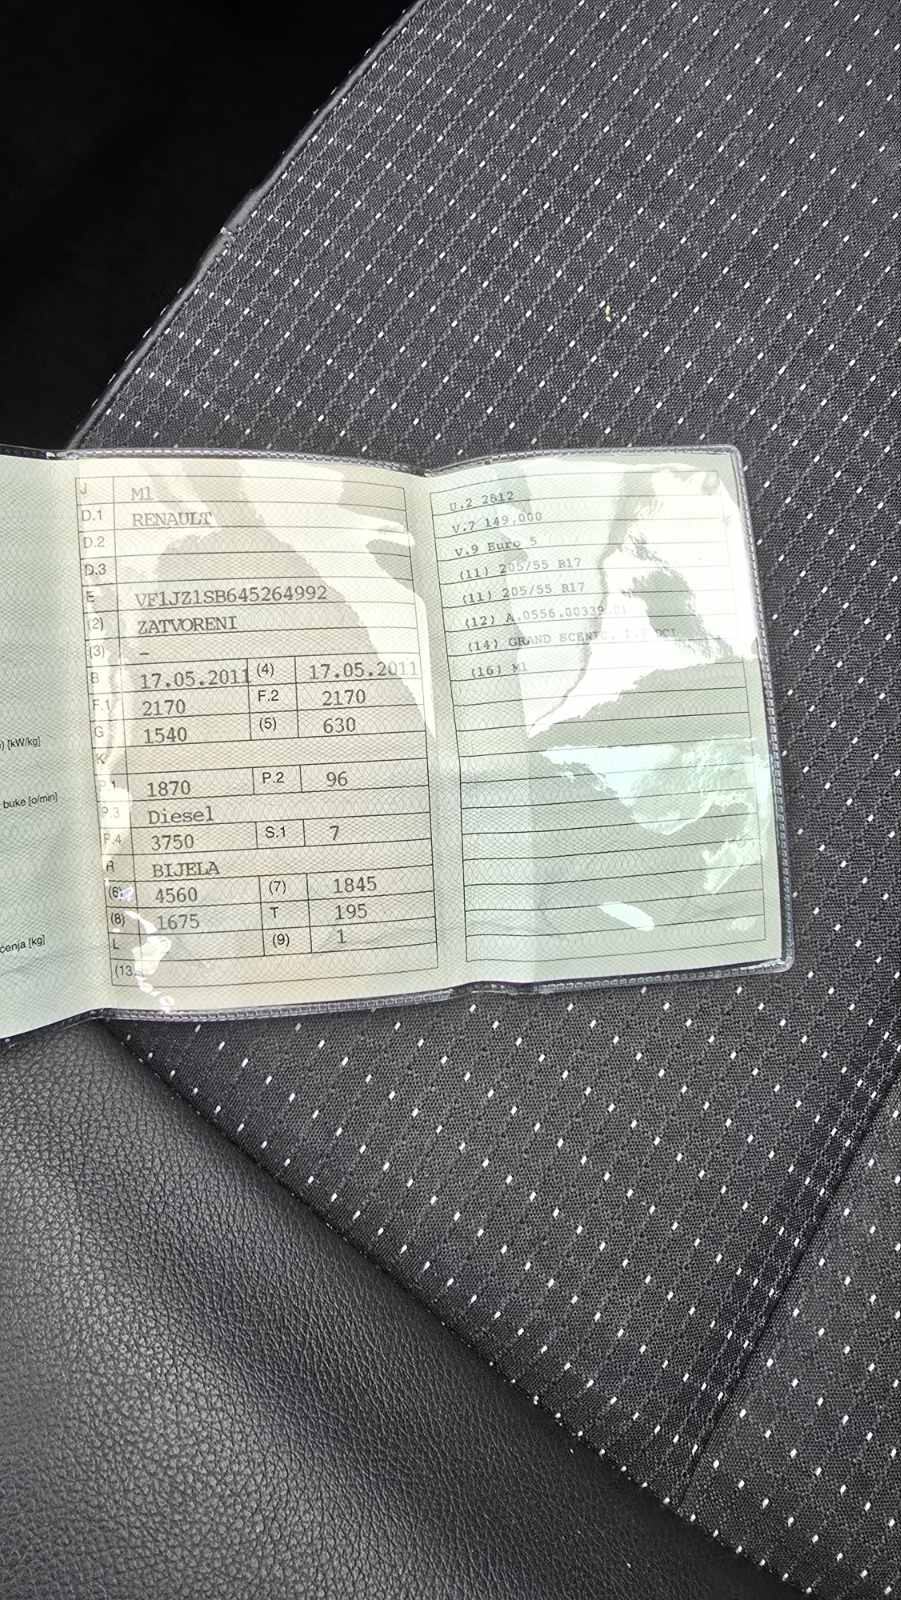 ) [kW/kg]
buke [o/min]
ćenja [kg]
J M1
D.1 RENAULT
D.2
D.3
E VF1JZ1SB645264992
(2) ZATVORENI
(3) –
B 17.05.2011 (4) 17.05.2011
F.1 2170 F.2 2170
G 1540 (5) 630
K
P.1 1870 P.2 96
P.3 Diesel
P.4 3750 S.1 7
R BIJELA
(6) 4560 (7) 1845
(8) 1675 T 195
L (9) 1
(13
U.2 2812
V.7 149,000
V.9 Euro 5
(11) 205/55 R17
(11) 205/55 R17
(12) A.0556.00339
(14) GRAND SCENIC, DCI
(16) M1